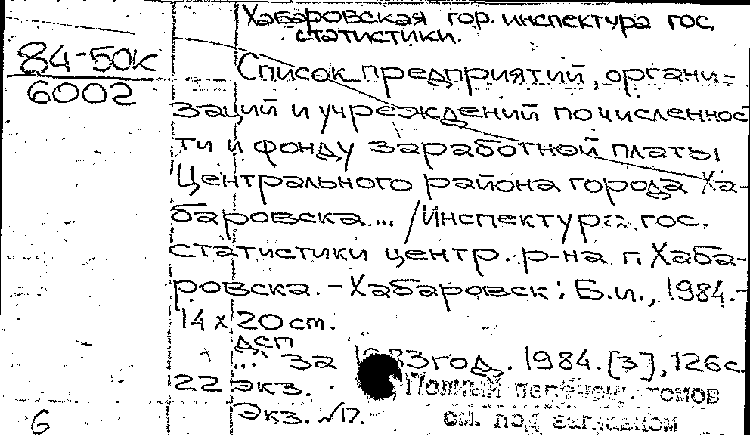 Хабаровская гор. инспектура гос.
статистики.
84-50к
6002
Список предприятий, органи-
заций и учреждений по численнос
ти и фонду заработной платы
Центрального района города Ха-
баровска... /Инспектура гос.
статистики центр. р-на г. Хаба-
ровска. - Хабаровск: Б.и., 1984.-
14 х 20 cm.
ДСП
... за 1983 год. 1984. [3], 126с.
22 экз.
Полный перечень томов
Экз. №17.
см. под заглавием
6